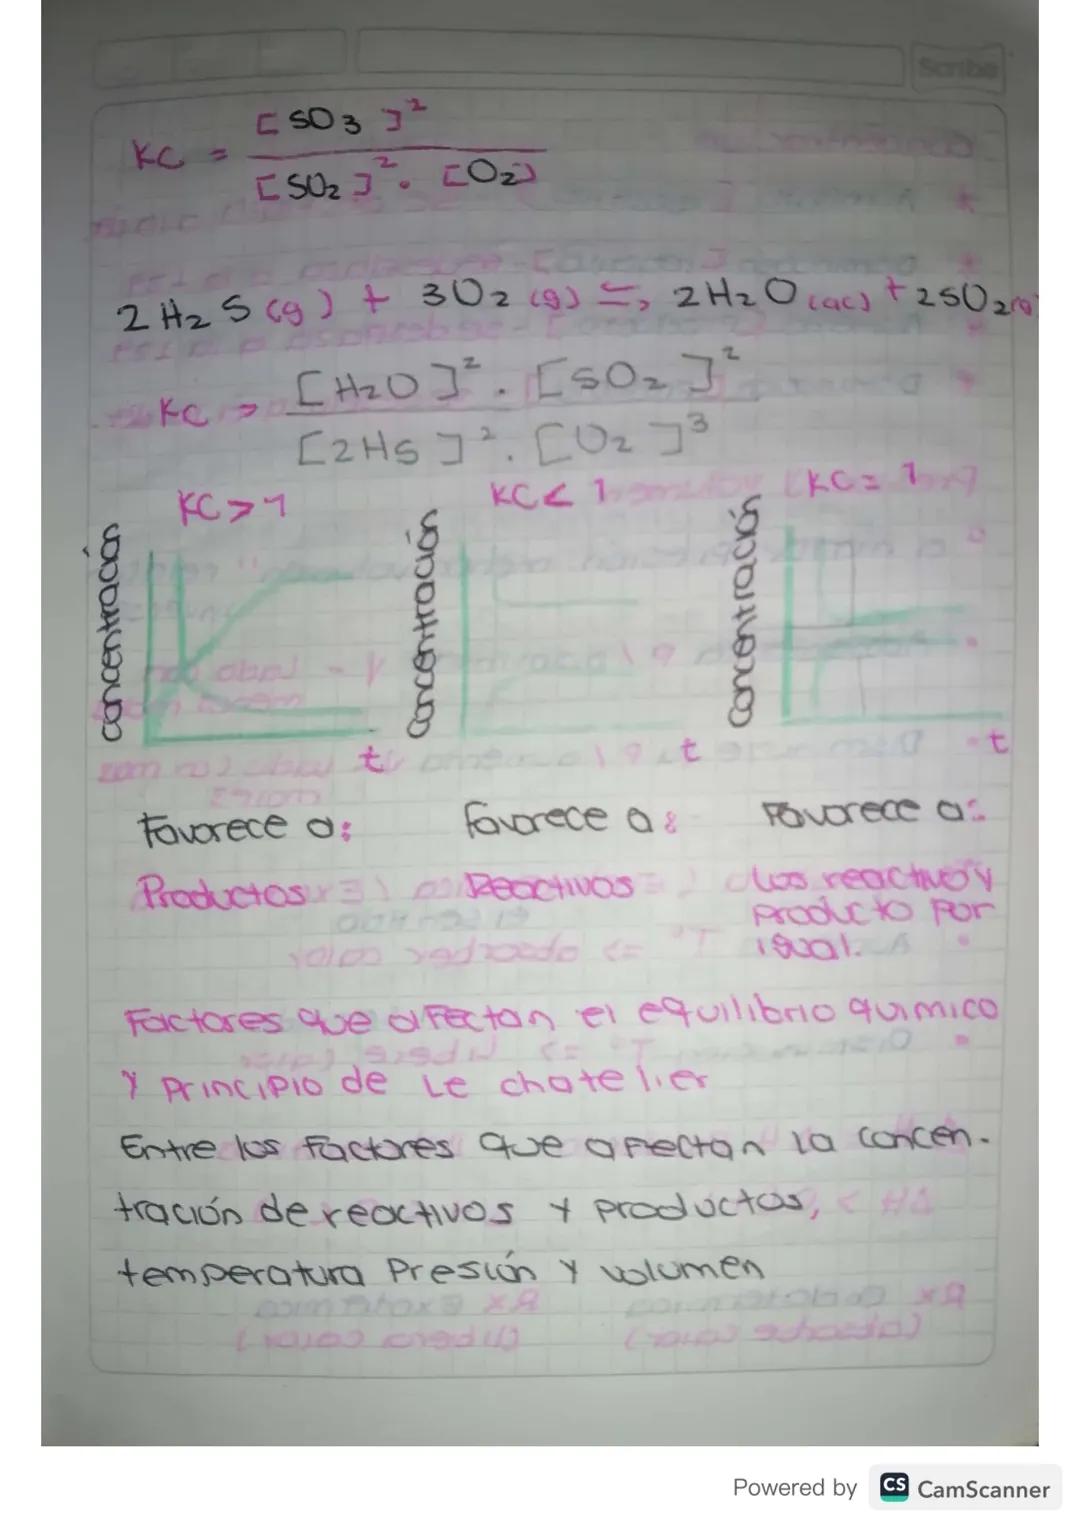 Scribe
KC = [SO3]² / [SO2]² · [O2]
2H2S(g) + 3O2(g) ⇆ 2H2O(ac) + 2SO2(g)
KC = [H2O]² · [SO2]² / [2HS]² · [O2]³
KC > 1 KC < 1 KC = 1
concentración concentración concentración
t t t
Favorece a: favorece a: Favorece a:
Productos Reactivos Los reactivo y
producto por
igual.
Factores que afectan el equilibrio quimico
y principio de Le chatelier
Entre los factores que afectan la concen-
tración de reactivos y productos,
temperatura Presión y volumen
Powered by CS CamScanner